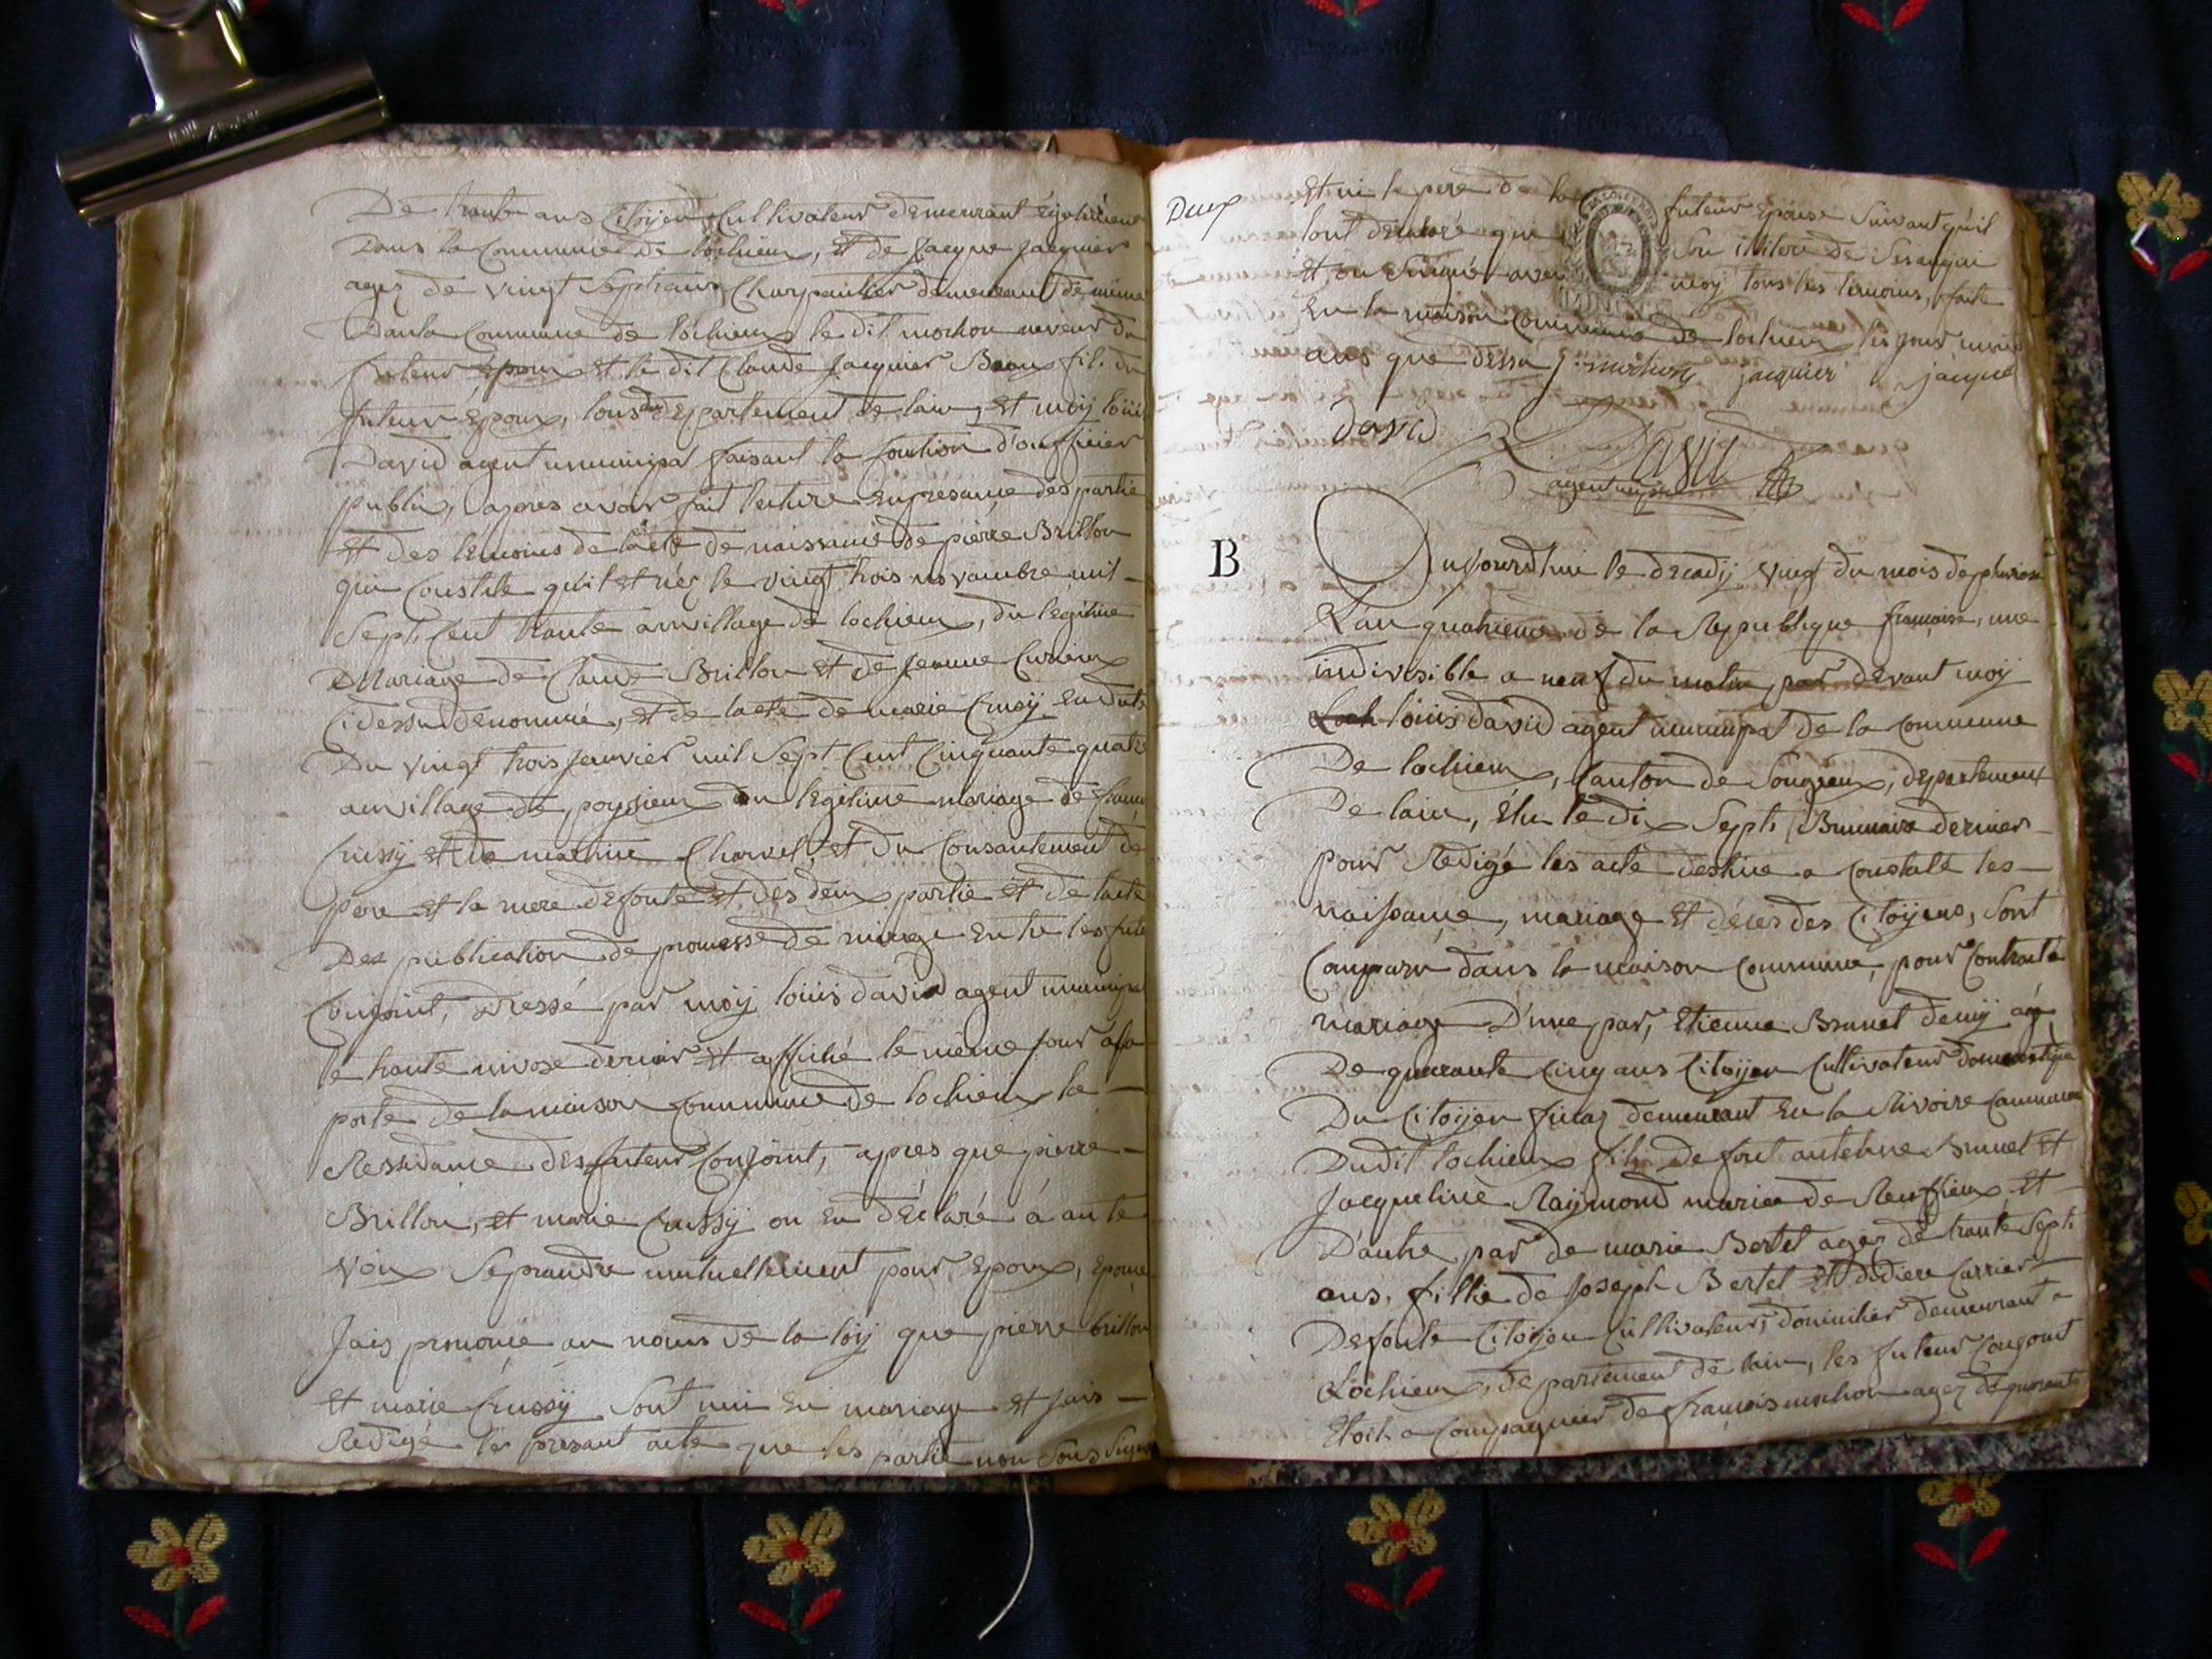 De trante ans Citoÿen Cultivateur demeurant
Dans la Commune de lochieux, et de Jacque Jacquier
agez de vingt Sept ans Charpantier demeurant de même
Dans la Commune de lochieux le dit mochon neveux du
futeur Époux et le dit Claude Jacquier Beaux fil. du
futeur Époux, tous du Departement de lain, et moÿ loüis
David agent municipal faisant la fontion d'oufficier
public, apres avoir fait lecture En présance des partie
et des témoins de lacte de naissance de pierre Brillon
qui Constite qu'il et néz le vingt trois novambre mil
Sept, Cent trante au village de lochieux, du legitime
Mariage de Claude Brillon et de Jeanne
Ci dessu dénommé, et de lacte de marie Crussÿ En date
Du vingt trois Janvier mil Sept Cent Cinquante quatre
au village de poyssieux du legitime mariage de
Crussÿ et de Charvet, et du Consantement de
pere et la mere defonte et des deux partie et de lacte
Des publication de promesse de mariage Entre les futeur
Conjoint, dressé par moÿ loüis david agent municipal
le trante nivose dernier et affiché le même jour a la
porte de la maison Commune de lochieux la
Ressidance des futeur Conjoint, apres que pierre
Brillon, et marie Crussÿ on En déclaré á aute
voix Se prandre mutuellement pour Epoux, Epouse
Jais prononcé au noms de la loÿ que pierre brillon
et marie Crussÿ Sont uni En mariage et Jais
Redigé le presant acte que les partie non Sous Signé
Deux
et ni le pere de la futeur Epouse Suivant qu'il
lont declaré que de
et on Signé avec moÿ tous les témoins, faite
En la maison Commune de lochieux les jour mois
ans que dessu f. mochon jacquier jacque
david David
agent
B
Aujourdhui le decadÿ vingt du mois de pluviose
L'an quatrieme de la Republique française, une
indivisible a neuf du matin par devant moÿ
Loch loüis david agent municipal de la Commune
De lochieux, Canton de Songieux, departement
De lain, Élu le dix Sept Brumaire dernier
pour Redigé les acte destiné a Constaté les
naissance, mariage et déces des Citoÿens, Sont
Comparu dans la maison Commune, pour Contraté
mariage D'une par, Etienne Brunet agé
De quarante Cinq ans Citoÿen Cultivateur domestique
Du Citoÿen demeurant En la Rivoire Commune
Dudit lochieux fils de font antelme Brunet et
Jacqueline Raÿmond mariee de Reuffieux et
D'autre par de marie Bertet agez de trante Sept
ans, fillie de Joseph Bertet et didiere Carrier
Defonte Citoÿen Cultivateur, domicilier demeurant a
Lochieux, departement de lain, les futeur Conjoint
Etoit a Compagnier de françois mochon agez de quarante